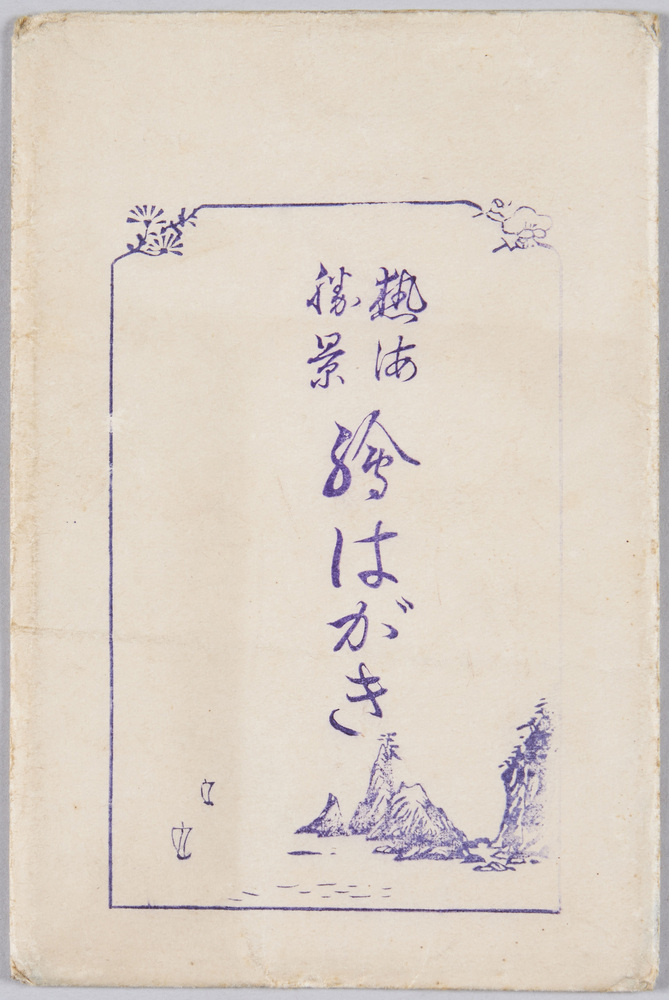 熱海
勝景
繪はがき